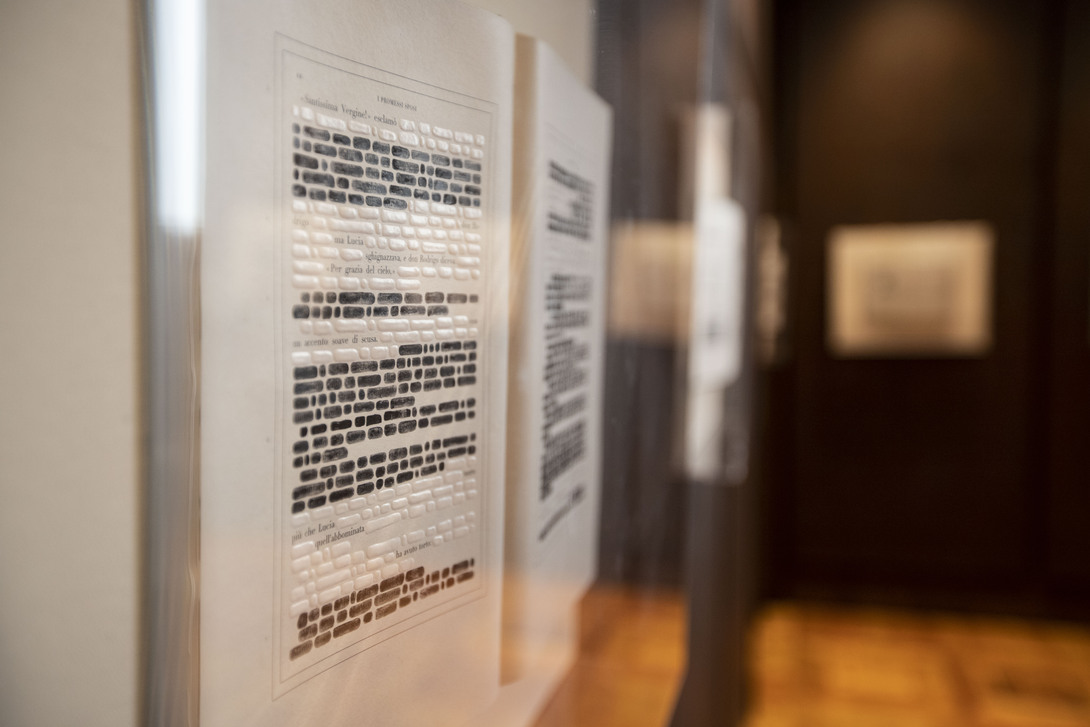 I PROMESSI SPOSI
«Santissima Vergine!» esclamò
ma Lucia
sghignazzava, e don Rodrigo diceva
«Per grazia del cielo,»
accento soave di scusa.
più che Lucia
quell'abbominata
ha avuto torto